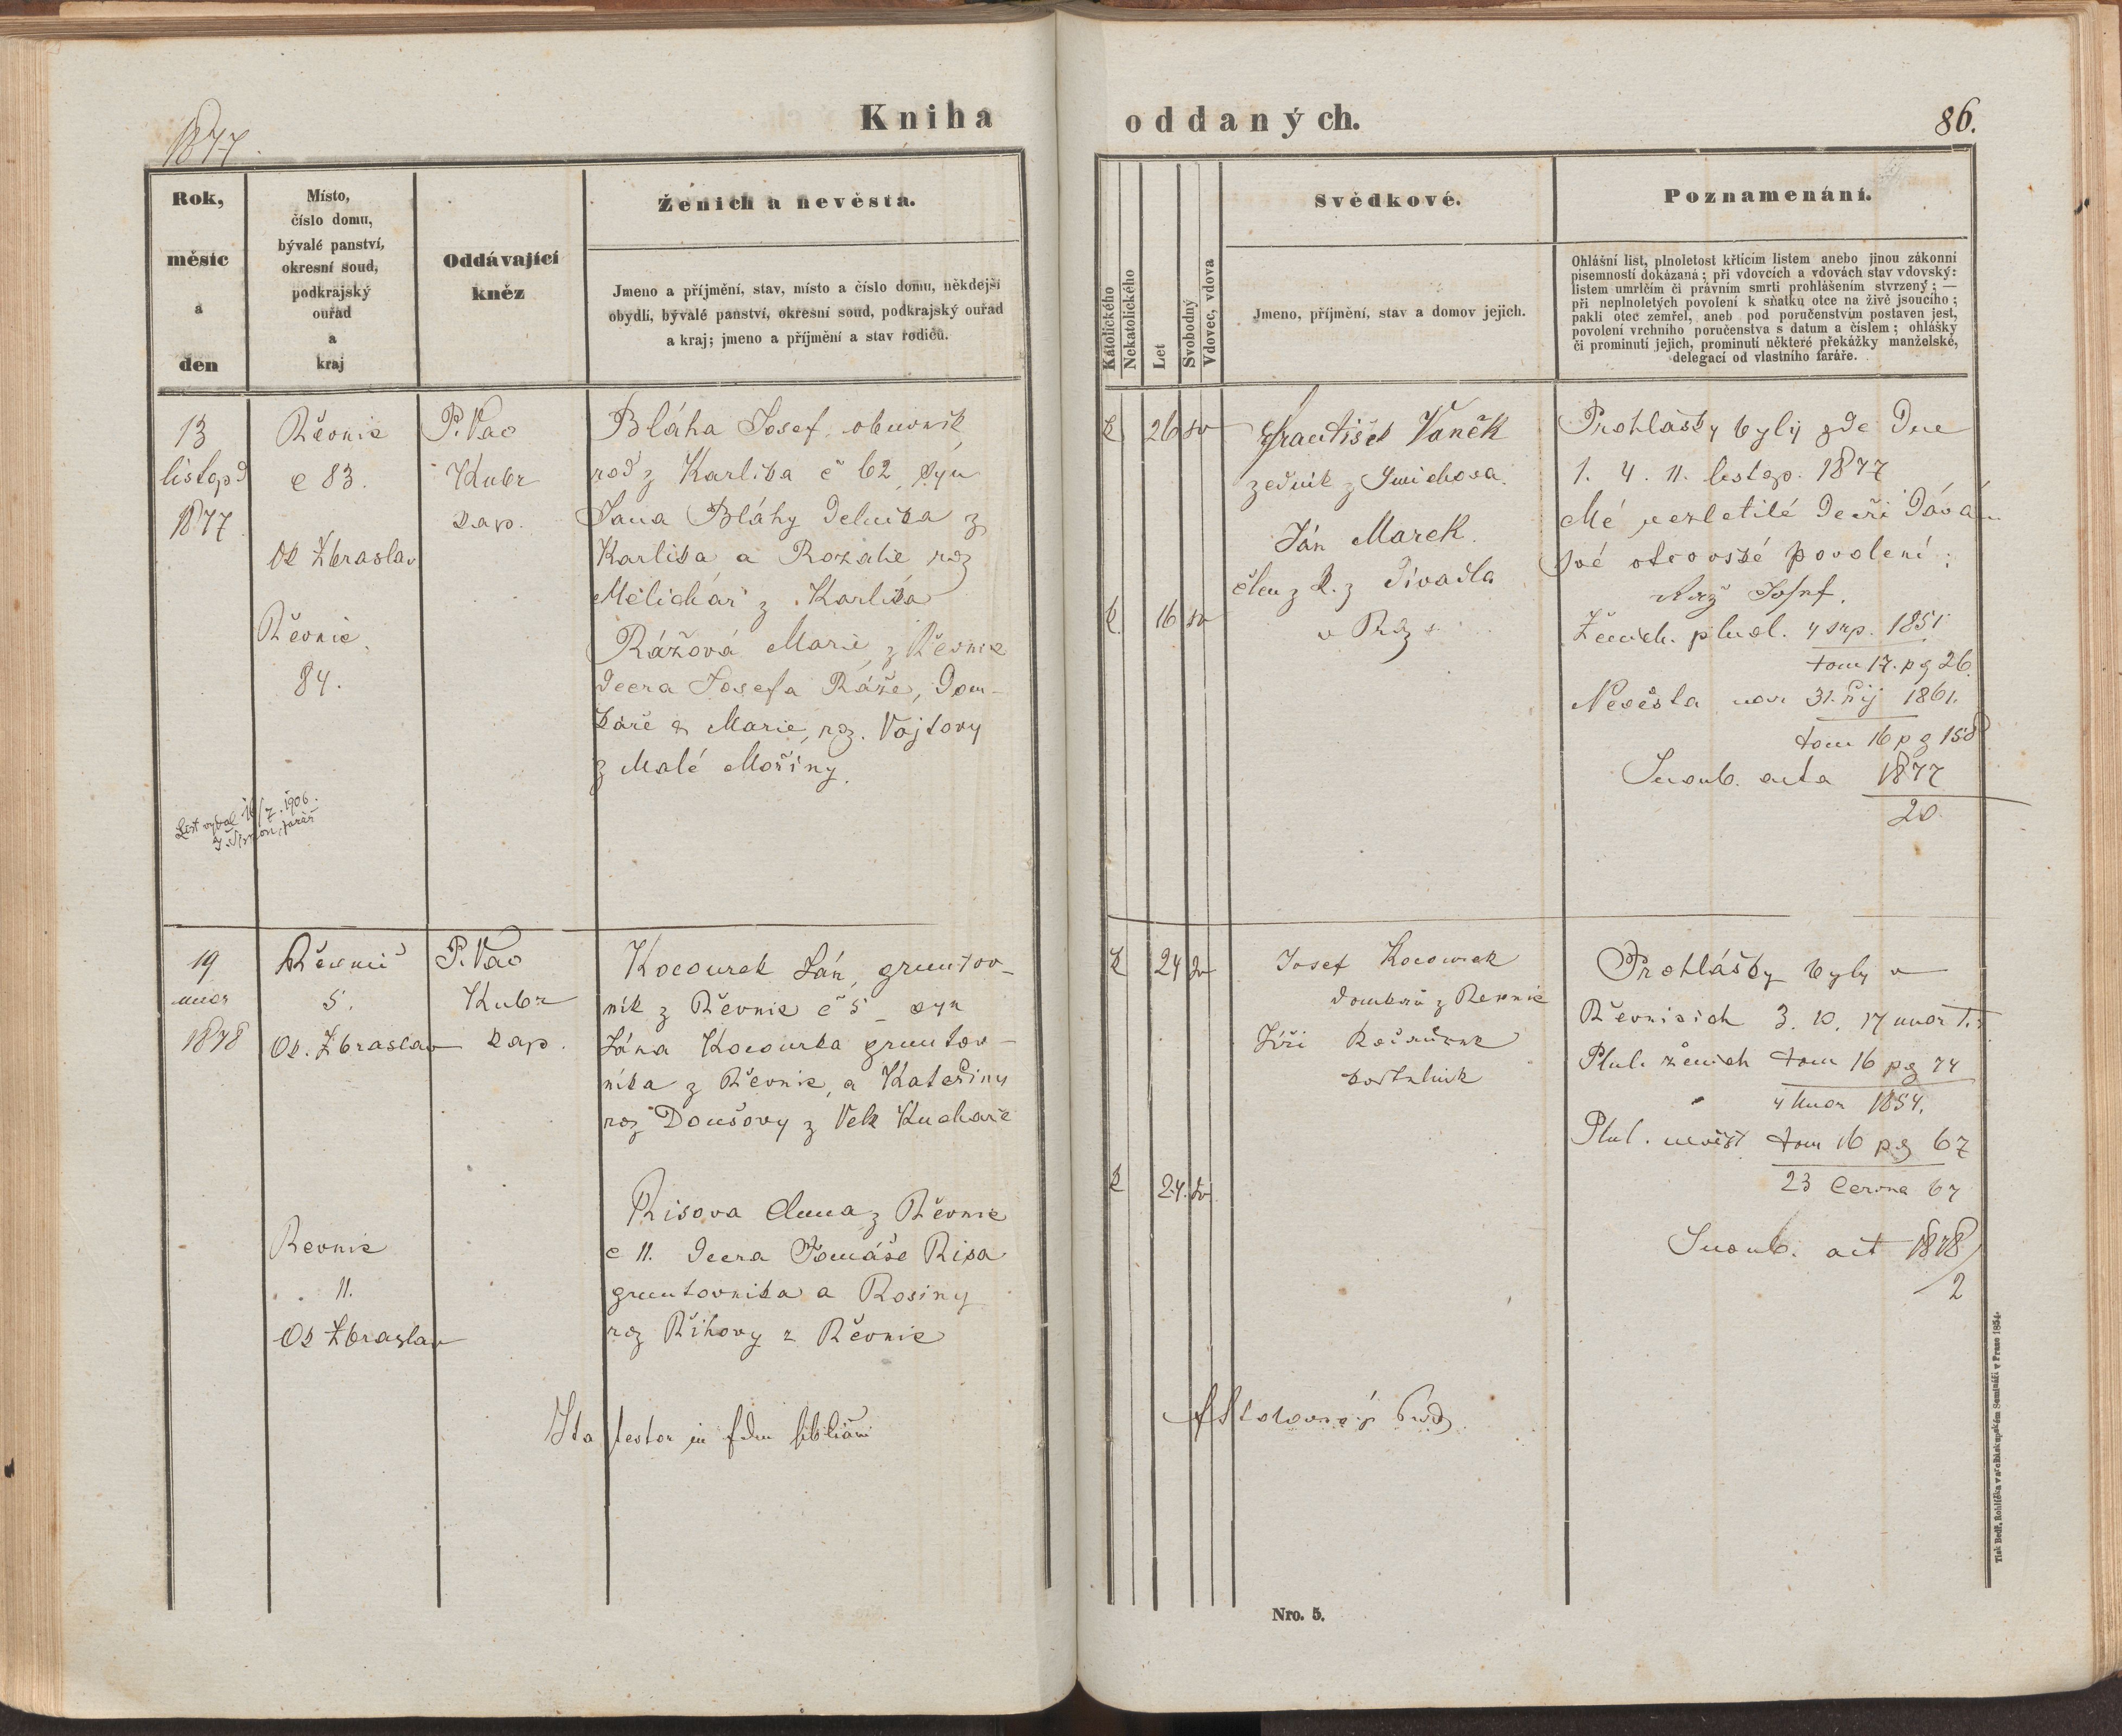 Kniha
oddaných.
1877.
86.
Rok,
měsíc
a
den
Místo,
číslo domu,
bývalé panství,
okresní soud,
podkrajský
ouřad
a
kraj
Oddávající
kněz
Ženich a nevěsta.
Jmeno a příjmění, stav, místo a číslo domu, někdejší
obydlí, bývalé panství, okresní soud, podkrajský ouřad
a kraj; jmeno a příjmění a stav rodičů.
Katolického
Nekatolického
Let
Svobodný
Vdovec, vdova
Svědkové.
Jmeno, příjmění, stav a domov jejich.
Poznamenání.
Ohlášní list, plnoletost křticím listem anebo jinou zákonní
písemností dokázaná; při vdovcích a vdovách stav vdovský:
listem umrlčím či právním smrti prohlášením stvrzený; —
při neplnoletých povolení k sňatku otce na živě jsoucího;
pakli otec zemřel, aneb pod poručenstvím postaven jest,
povolení vrchního poručenstva s datum a číslem; ohlášky
či prominutí jejich, prominutí některé překážky manželské,
delegací od vlastního faráře.
13
listopd
1877.
Řevnic
c 83.
Ok Zbraslav
Řevnic
84.
P. Vac
Kubr
kap.
Bláha Josef, obuvník,
rod z Karlika č 62, syn
Jana Bláhy Delnika z
Karlika a Rozalie roz
Melichár z Karlika
Rážová Marie, z Řevnic
dcera Josefa Ráže, Dom-
káře a Marie, roz. Vojtovy
z Malé Mořiny.
List vydal 16/7. 1906.
J. Šimon, farář
k 26 sv
k 16 sv
František Vaněk
zedník z Smichova.
Ján Marek.
člen z k. z Divadla
v Praze
Prohlášky byly zde Dne
1. 4. 11. listop. 1877
Mé nezletilé Deři Dávám
své otcovské povolení:
Ráž Josef.
Ženich. plnol. 4 srp. 1851
tom 17. pg 26.
Nevěsta nar 31. říj 1861.
tom 16 pg 158
Snoub. acta 1877
20
19
unor
1878
Řevnic
5.
Ok. Zbraslav
Revnic
11.
Ok Zbraslav
P. Vac
Kubr
kap.
Kocourek Ján, gruntov-
ník z Řevnic č 5 - syn
Jána Kocourka gruntov-
níka z Řevnic, a Kateřiny
roz Doušovy z Velk Kuchaře
Risova Anna z Řevnic
c 11. dcera Tomáše Risa
gruntovnika a Rosiny
roz Řihovy z Řevnic
k 24 sv
k 24. sv
Josef Kocourek
domkář z Revnic
Jiří
Prohlášky byly v
Řevnicich 3. 10. 17 unor t. r
Plnl. ženich tom 16 pg 74
4 unor 1854.
Plnl. nevěst tom 16 pg 67
23
Snoub. act 1878
2
Ita testor in
Nro. 5.
Tisk Bedř. Rohlíčka v arcibiskupském Semináři v Praze 1854.